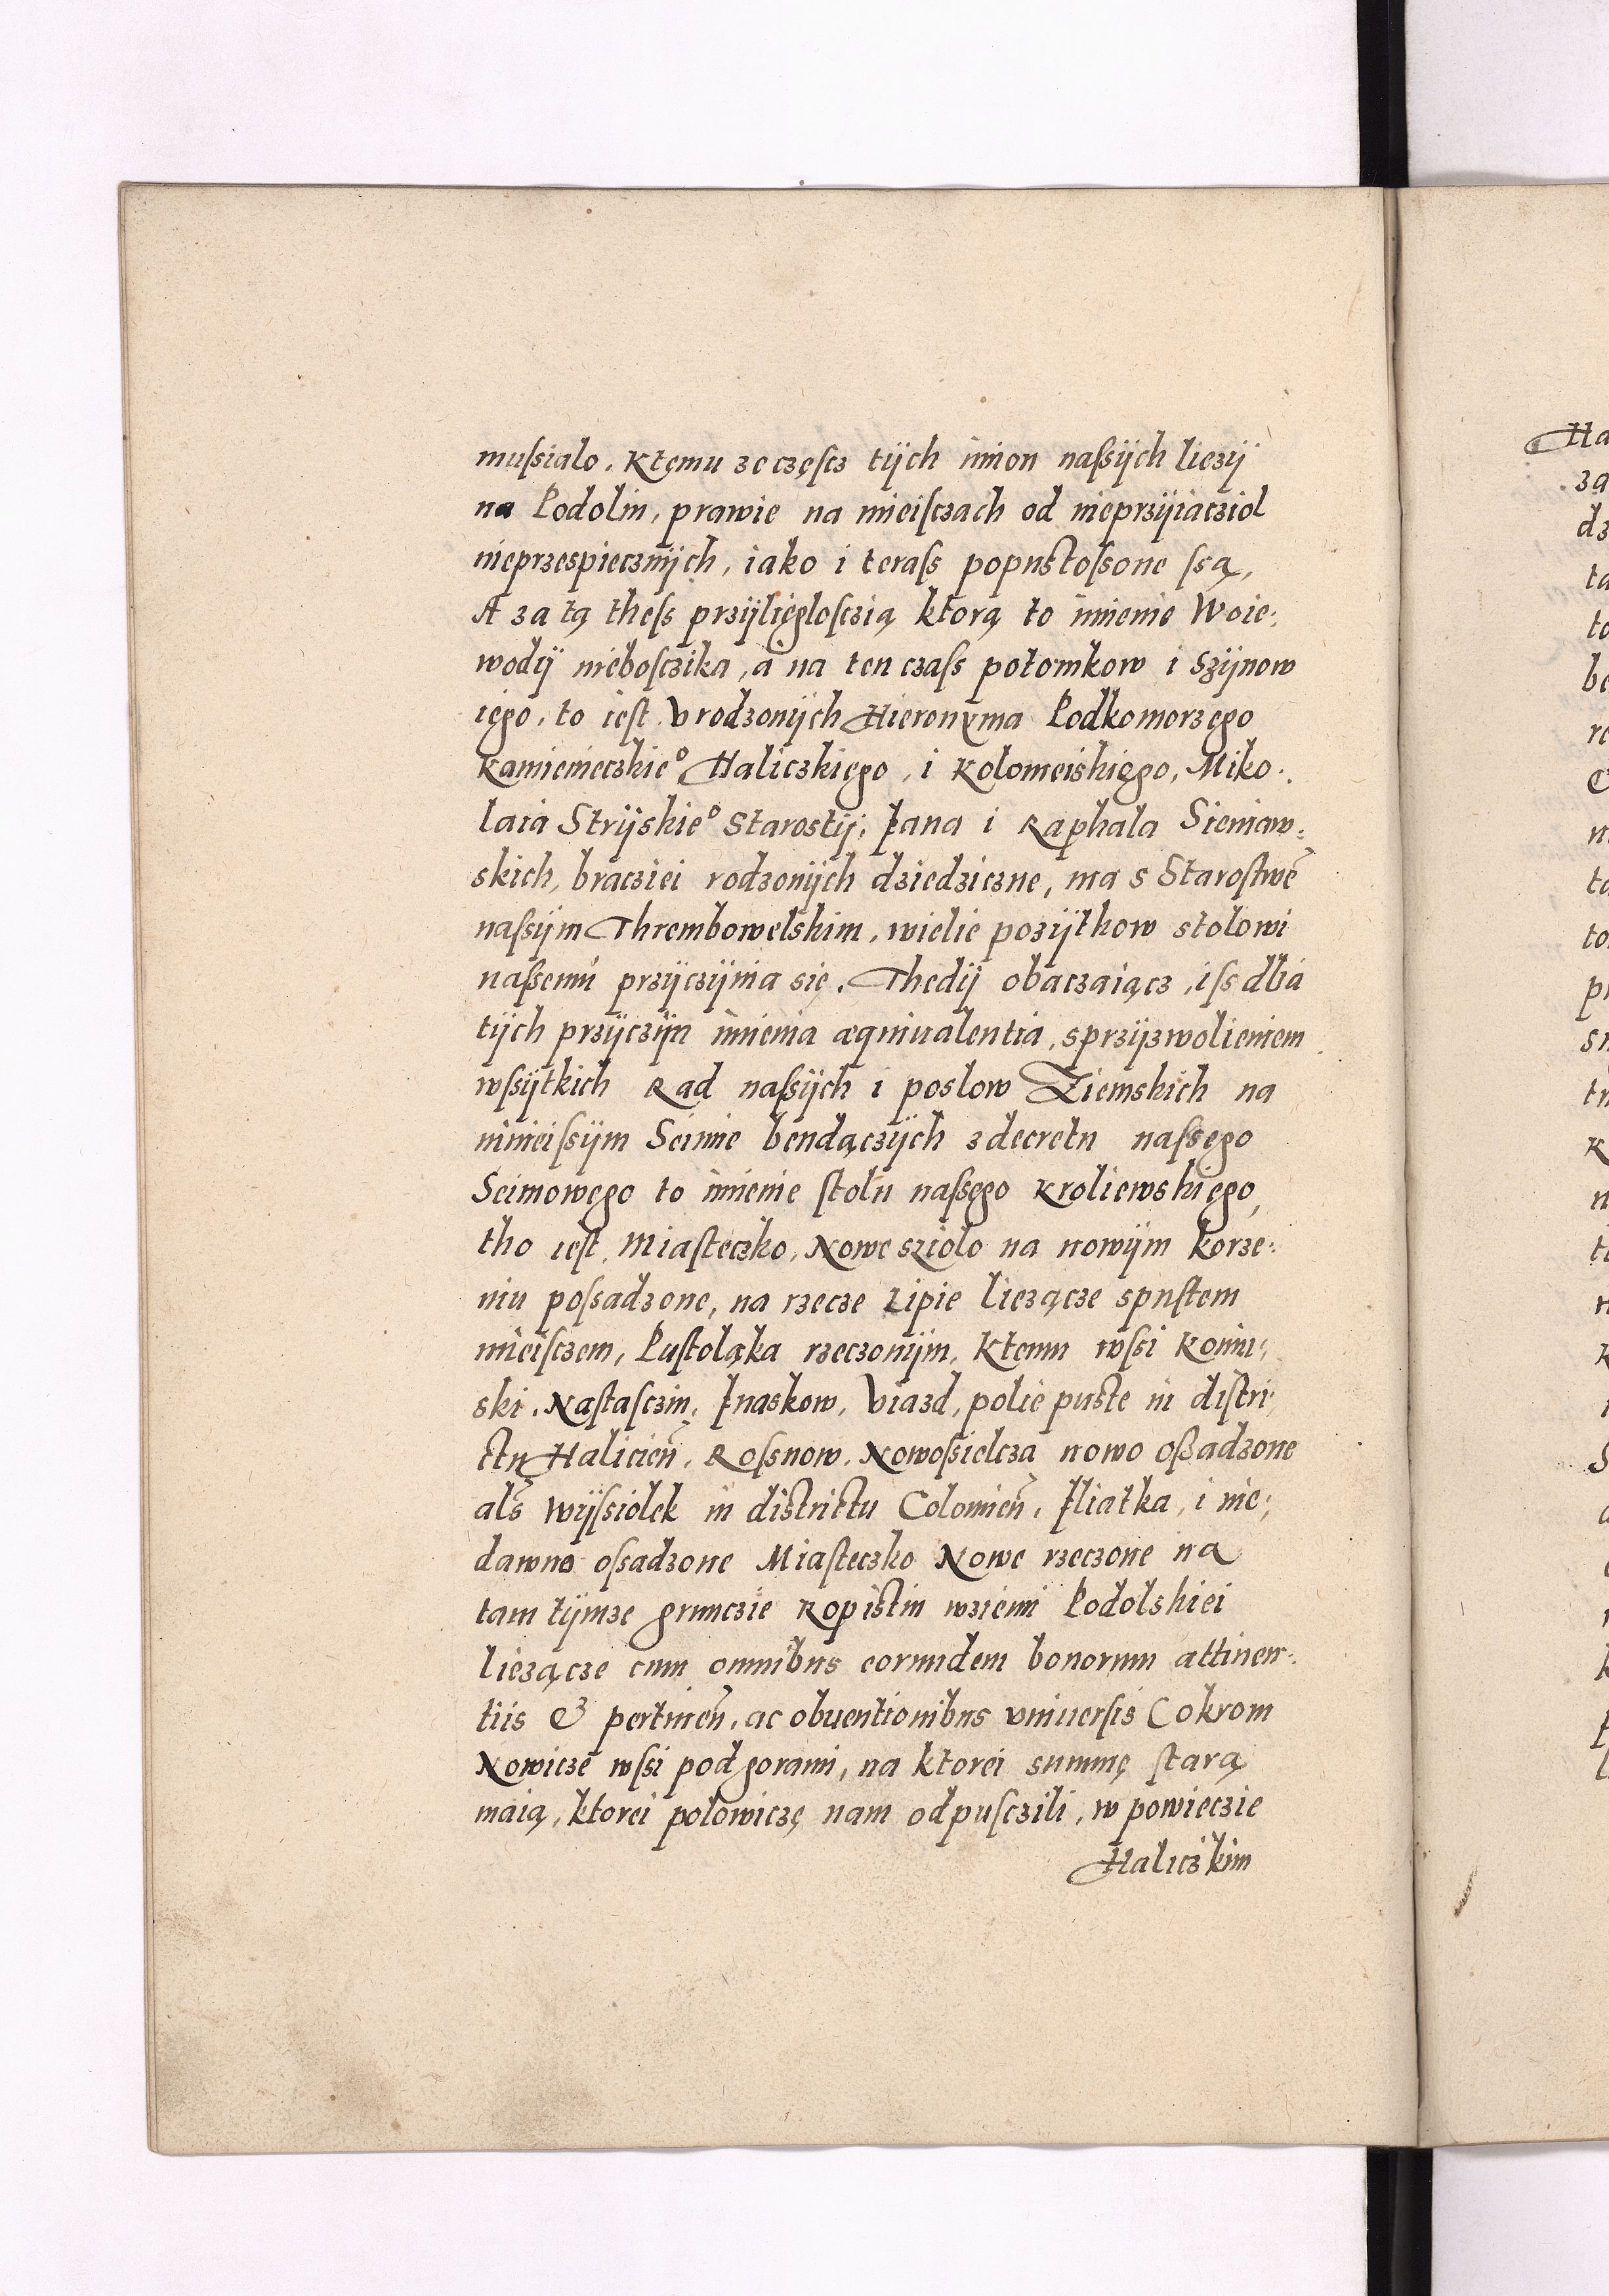 muſsialo. Ktęmu ze częſcz tijch imion naſsijch lieżij
na Podoliu, prawie na mieiſczach od nieprzijiacziol
nieprzespiecznijch, iako i teraſs popuſtoſsone ſsą,
A za tą theſs przijliegloſczią ktorą to imienie Woie:
wodij nieboſczika, a na ten czaſs potomkow i Szijnow
iego, to ieſt Vrodzonijch Hieronyma Podkomorzego
Kamienieczkie° Haliczkiego, i Kolomeiskiego, Miko:
laia Strijskie° Starostij, Jana i Raphala Sieniaw:
skich, bracziei rodzonijch dziedziczne, ma s Staroſtwē
naſsijm Thrembowelskim, wielie pozijtkow stolowi
naſsemu przijczijnia się. Thedij obaczaiącz, iſs dlia
tijch przijczijn imienia æquiualentia, sprzijzwolieniem
wſsijtkich Rad naſsijch i poslow Ziemskich na
ninieiſsijm Seimie bendączijch z decretu naſsego
Seimowego to imienie ſtolu naſsego Kroliewskiego,
tho ieſt Miaſteczko, Nowe sziolo na nowijm korze:
niu poſsadzone, na rzecze Lipie lieżącze spuſtem
mieiſczem, Puſtoląka rzeczonijm, Ktemu wſsi Koniu:
ski, Naſtaſczin, Jnaskow, Viazd, polie puste in diſtri:
ctu Halicień, Roſsnow, Nowoſsielcza nowo oſsadzone
als̄ Wijſsiolek in districtu Colomień, Jliatka, i nie:
dawno oſsadzone Miaſteczko Nowe rzeczone na
tam tijmze grunczie Kopistin wziemi Podolskiei
lieżącze cum omnibus eorundem bonorum attinen:
tiis & pertineń, ac obuentionibus vniuerſis (okrom
Nowicze wſsi pod gorami, na ktorei summę ſtarą
maią, ktorei polowiczę nam odpuſczili, w powieczie
Haliczkim
Ha